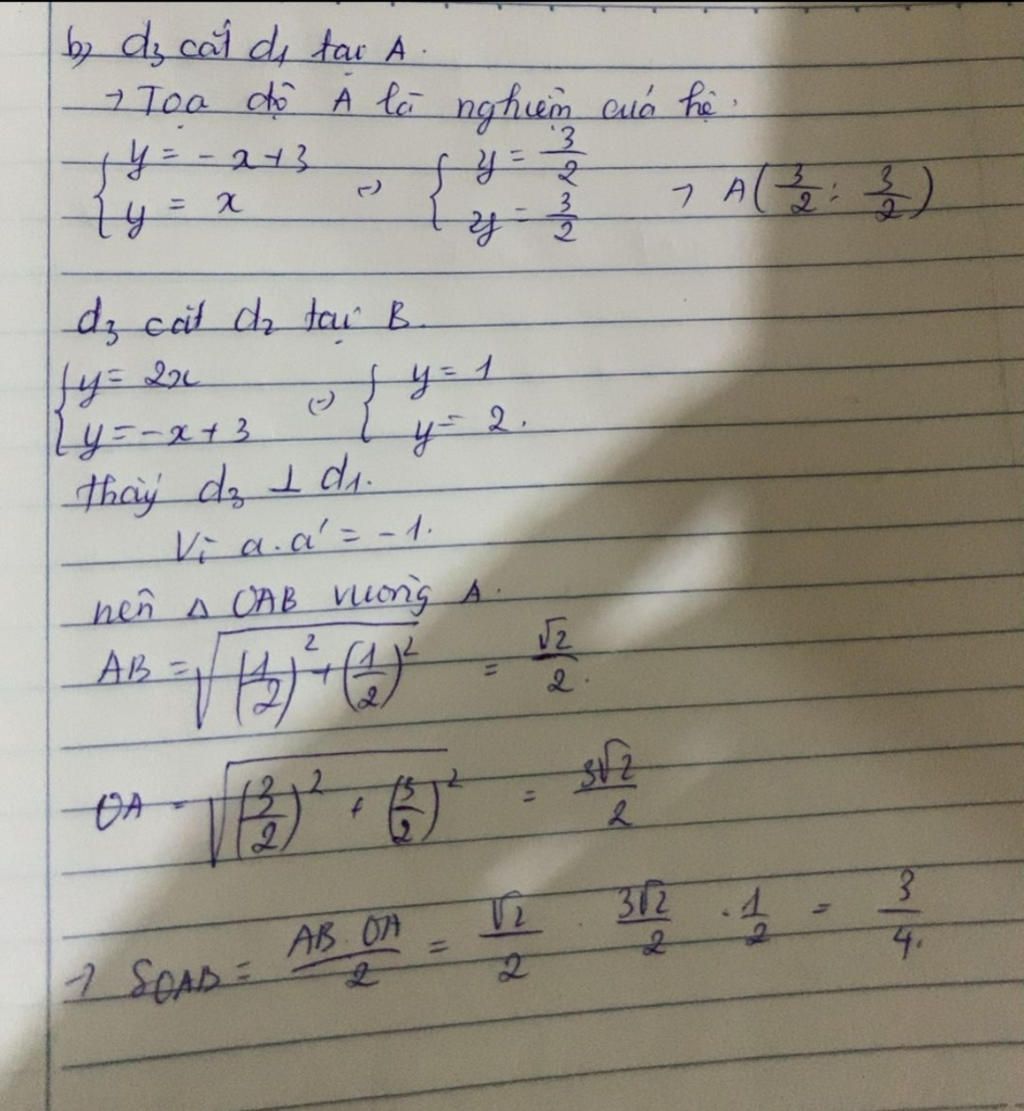 b) d₃ cắt d₁ tại A.
→ Tọa độ A là nghiệm của hệ.
{ y = -x+3 ; y = x (=) { y = 3/2 ; y = 3/2 → A(3/2 ; 3/2)
d₃ cắt d₂ tại B.
{ y = 2x ; y = -x + 3 (=) { y = 1 ; y = 2.
thấy d₃ ⊥ d₁.
Vì a.a' = -1.
nên Δ OAB vuông A.
AB = √((1/2)² + (1/2)²) = √2/2.
OA = √((3/2)² + (3/2)²) = 3√2/2
→ SOAB = AB.OA/2 = √2/2 . 3√2/2 . 1/2 = 3/4.